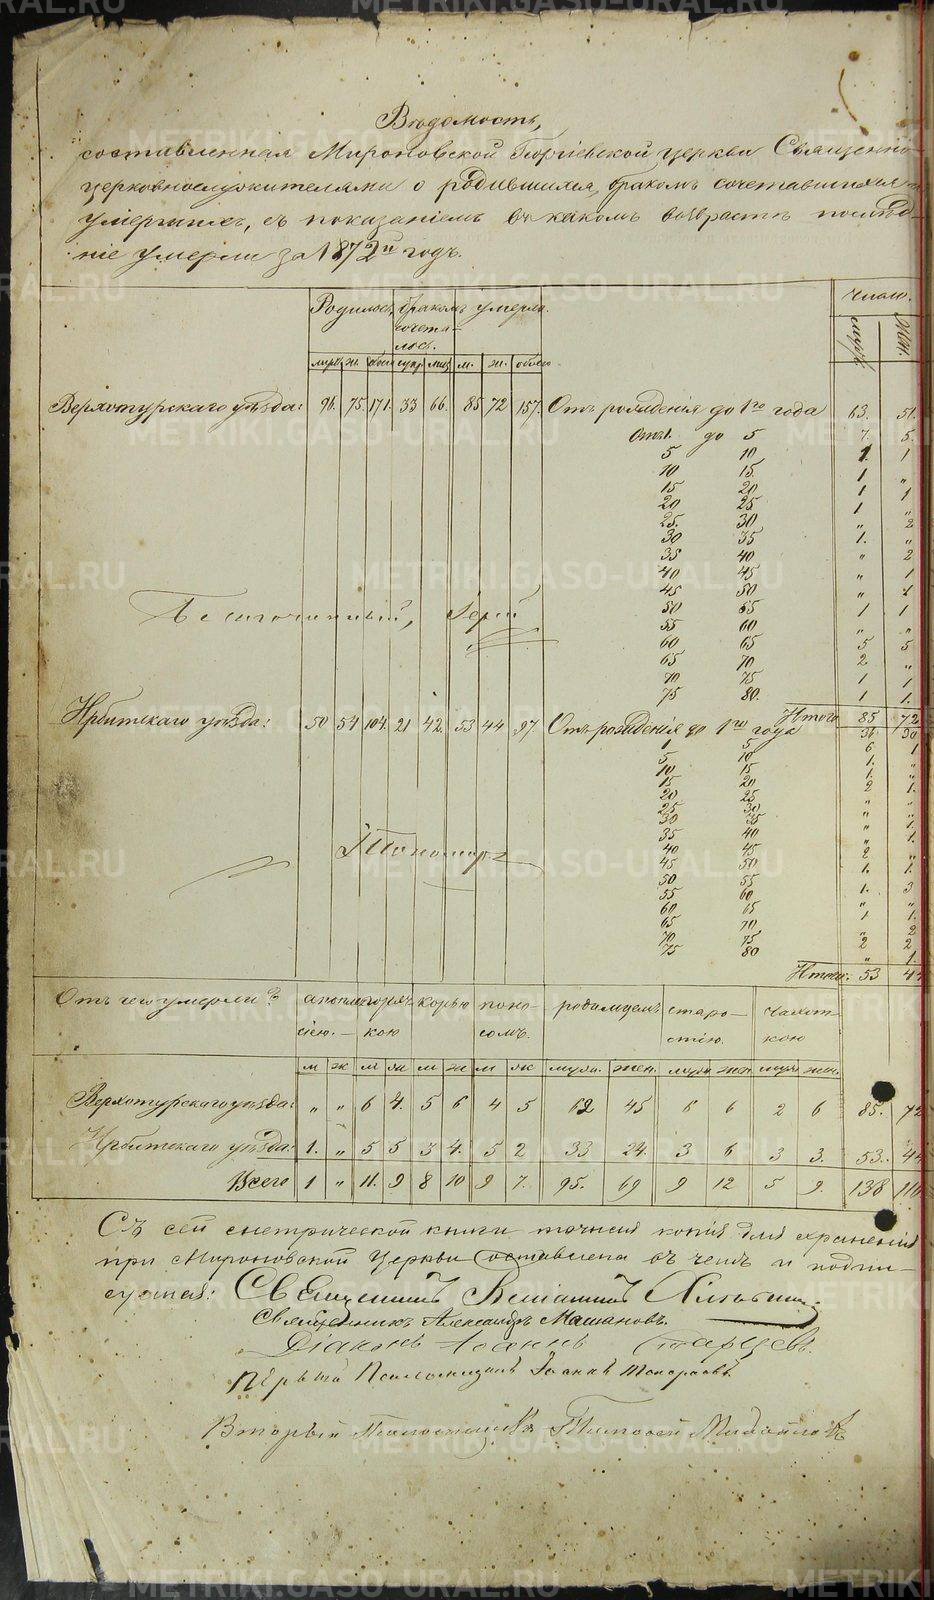 Вѣдомость,
составленная Мироновской Георгіевской церкви Священно-
церковнослужителями о родившихся, бракомъ сочетавшихся и
умершихъ, съ показаніемъ въ какомъ возрастѣ послѣд-
ніе умерли за 1872й годъ.
Родилось бракомъ сочета-лось. умерло. число.
муж. ж. обоего супр. лиц м. ж. обоего мужс. жен.
Верхотурскаго уѣзда: 96. 75. 171. 33 66. 85 72 157. Отъ рожденія до 1го года 63. 51.
Отъ 1. до 5 7. 5.
5 10 1. 1
10 15. 1 „
15 20 1 1
20 25 1 „
25. 30 „ 2
30 35 1. „
35 40 „ 2
40 45 „ 1
45 50 „ 1
50 55 1 1
55 60 „ „
60 65 5 5
65 70 2. „
70 75 1 1
75 80. 1 1.
Благочинный, Іерей
Итого 85 72
Ирбитскаго уѣзда: 50 54 104. 21 42. 53 44 97. Отъ рожденія до 1го года 36. 30
1 5 6 1
5 10 1. „
10 15 1. „
15 20 2 1.
20 25 „ „
25 30 „ 1.
30 35 „ 1.
35 40
40 45 2 „
45 50 1. 1.
50 55 1. 3
55 60 „ „
60 65 1 1.
65 70 „ 2
70 75 2 2
75 80 „ 1.
Итого. 53 44
Отъ чего умерли? апоплек-сіею. горяч-кою корью поно-сомъ. родимцемъ старо-стію. чахот-кою
м ж м ж м ж м ж муж. жен. муж жен муж жен.
Верхотурскаго уѣзда: „ „ 6 4. 5 6 4 5 62 45 6 6 2 6 85. 72
Ирбитскаго уѣзда: 1. „ 5 5 3 4. 5 2 33 24. 3 6 3 3. 53. 44
Всего 1 „ 11. 9 8 10 9 7. 95. 69 9 12 5 9. 138 116
Съ сей метрической книги точная копія для храненія
при Мироновской Церкви составлена въ чемъ и подпи-
суемся: Священникъ
Священникъ Александръ Машановъ.
Діаконъ Іоаннъ Старцевъ.
Первый Псаломщикъ Іоаннъ
Второй Псаломщикъ Тимофей Михайловъ
METRIKI.GASO-URAL.RU